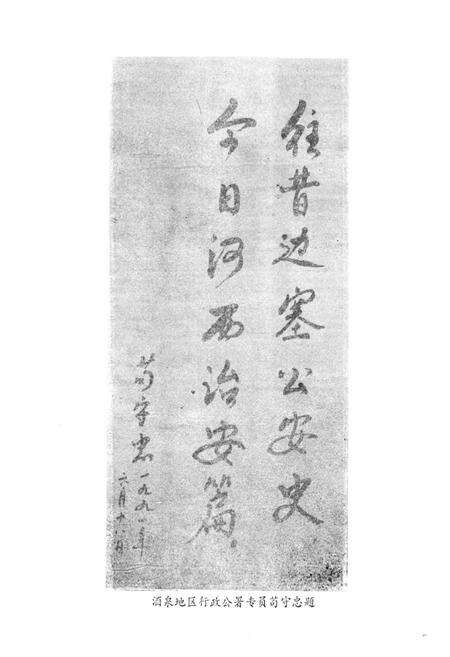 往昔边塞公安史
今日河西治安篇。
苟守忠
一九九一年
六月十八日
酒泉地区行政公署专员苟守忠题